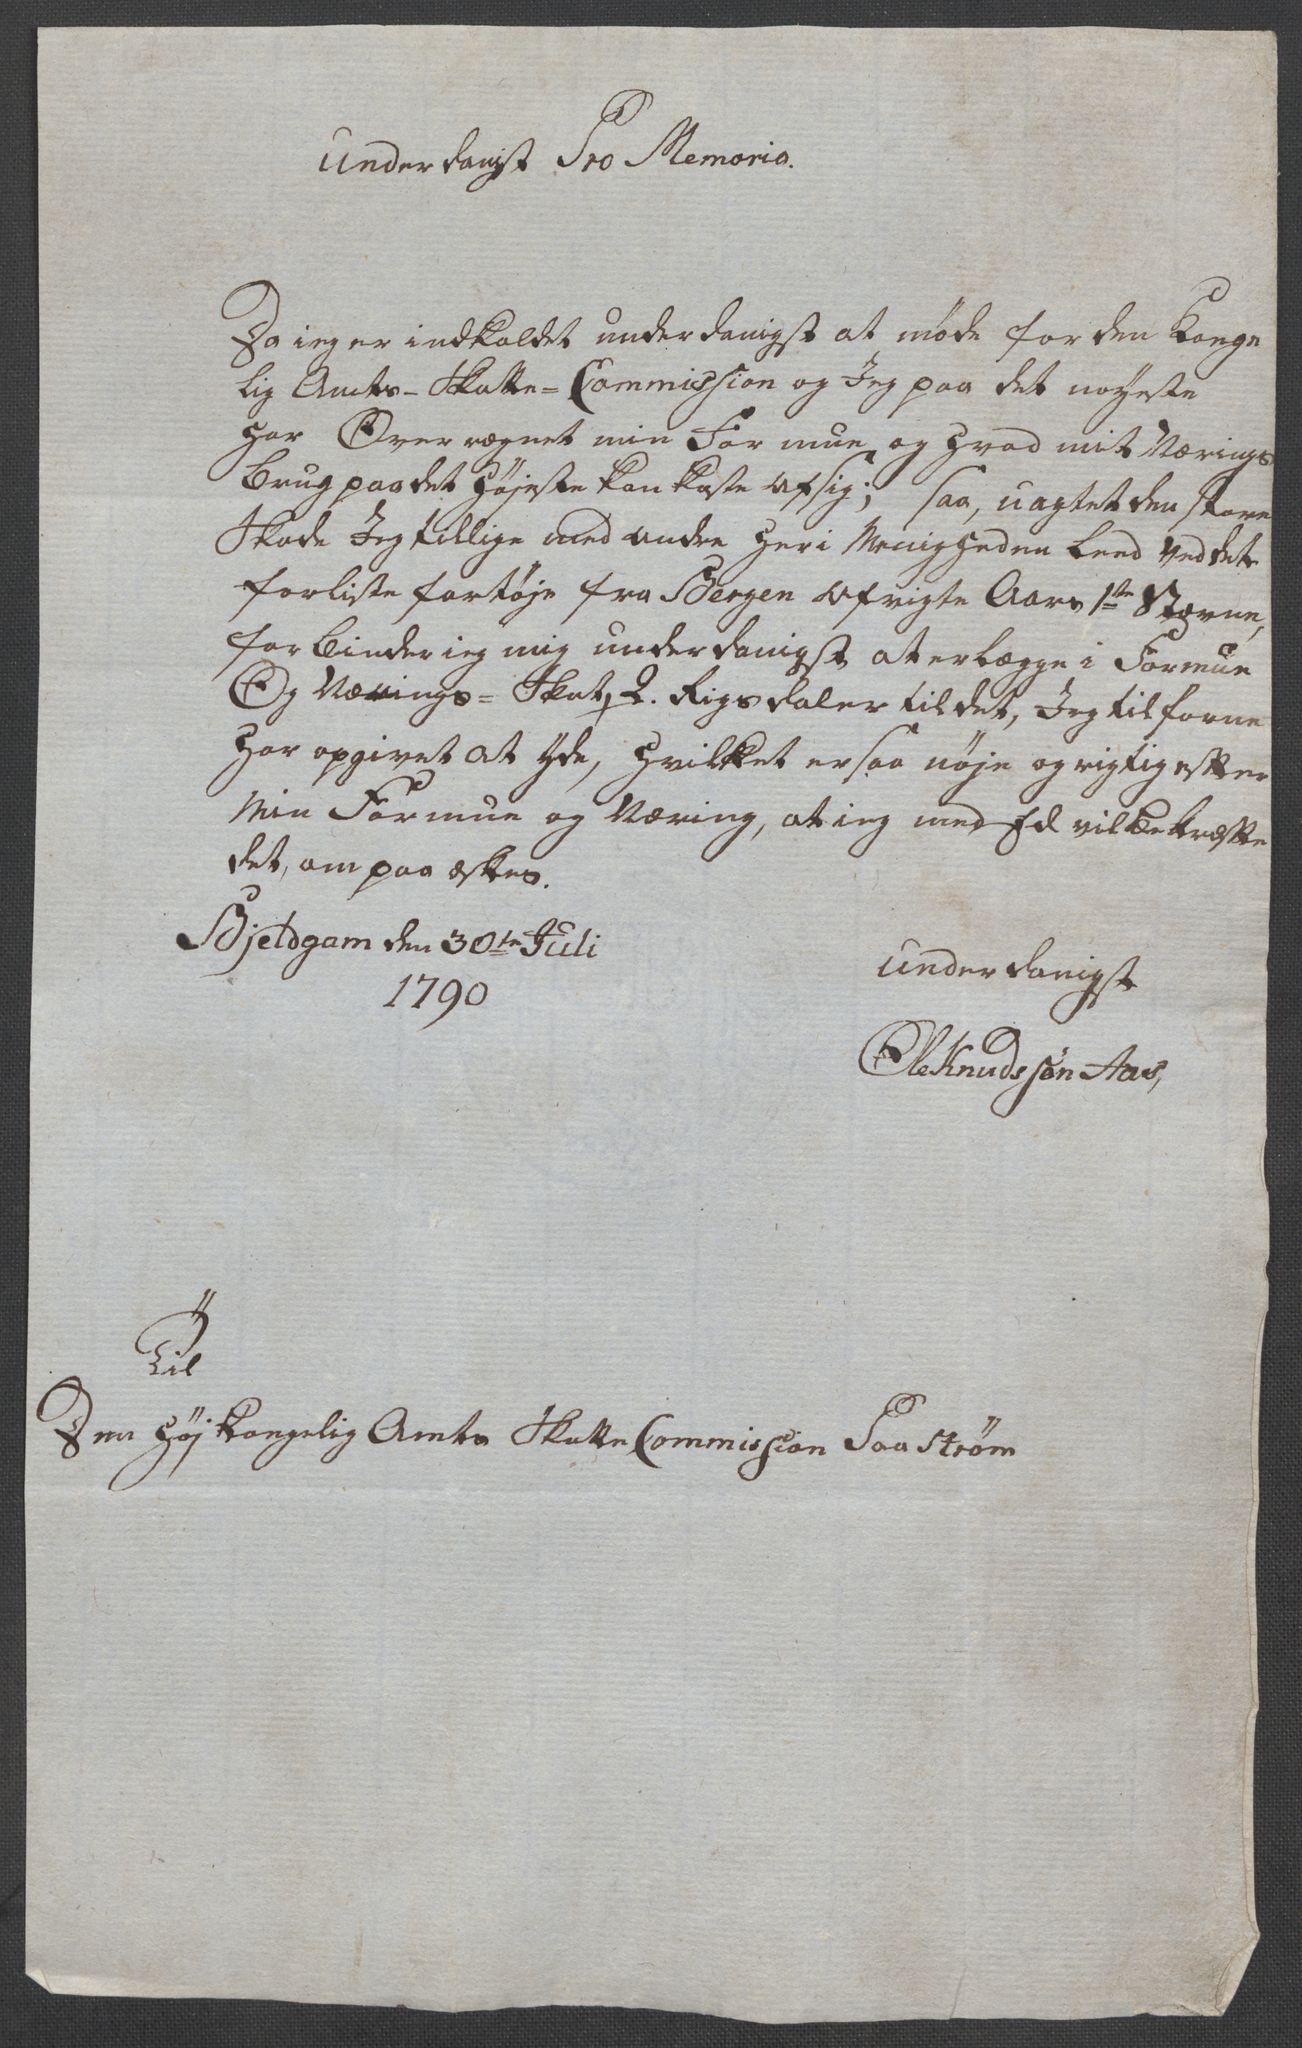 underdanigst Pro Memoria.
Da ieg er indkaldet underdanigst at møde for den Konge
lig Amts-Skatte=Commission og Jeg paa det nøyeste
har Overregnet min Formue og hvad mit Nærings
brug paa det høјeste kan kaste af sig; saa, uagtet den store
Skade Jeg tillige med andre her i Menigheden leed ved det
forliste fartøje fra Bergen afvigte Aars 1ste Stævne,
forbinder ieg mig underdanigst at erlægge i Formue
Og Nærings=Skat, 2. Rigsdaler til det, Jeg tilforne
har opgivet at yde, hvilket er saa nøje og rigtig efter
Min Formue og Næring, at ieg med Ed vil bekræfte
det, om paa æskes.
Bjeldgam den 30te Juli
1790
underdanigst
Ole Knudssøn Aas,
Til
Den høj kongelig Amts Skatte Commission Paa Strøm